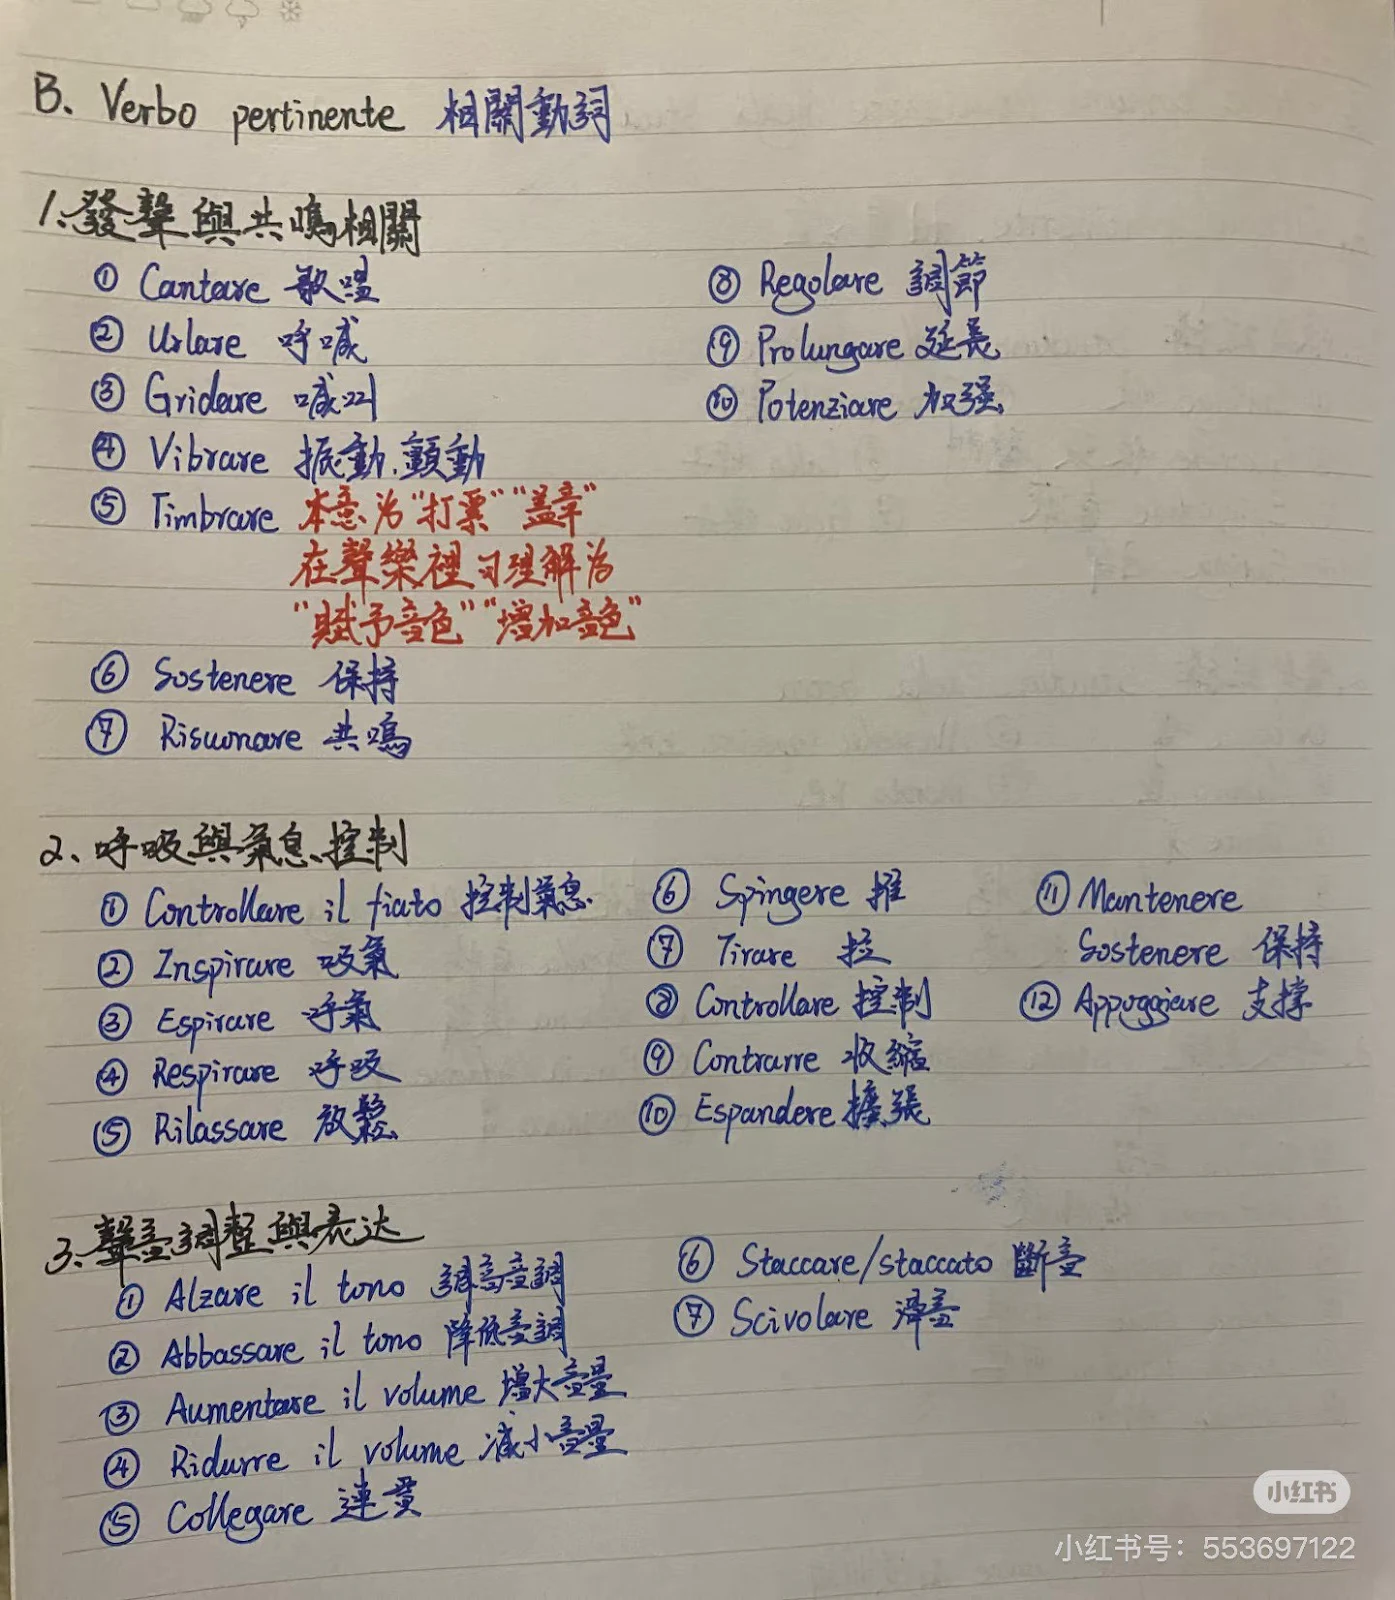 B. Verbo pertinente 相關動詞
1.發聲與共鳴相關
① Cantare 歌唱
② Urlare 呼喊
③ Gridare 喊叫
④ Vibrare 振動.顫動
⑤ Timbrare 本意為"打票""蓋章"
在聲樂裡可理解為
"賦予音色""增加音色"
⑥ Sostenere 保持
⑦ Risuonare 共鳴
⑧ Regolare 調節
⑨ Prolungare 延長
⑩ Potenziare 加强
2、呼吸與氣息控制
① Controllare il fiato 控制氣息
② Inspirare 吸氣
③ Espirare 呼氣
④ Respirare 呼吸
⑤ Rilassare 放鬆
⑥ Spingere 推
⑦ Tirare 拉
⑧ Controllare 控制
⑨ Contrarre 收縮
⑩ Espandere 擴張
⑪ Mantenere
Sostenere 保持
⑫ Appoggiare 支撐
3.聲音調整與表达
① Alzare il tono 調高音調
② Abbassare il tono 降低音調
③ Aumentare il volume 增大音量
④ Ridurre il volume 减小音量
⑤ Collegare 連貫
⑥ Staccare/staccato 斷音
⑦ Scivolare 滑音
小红书
小红书号：553697122